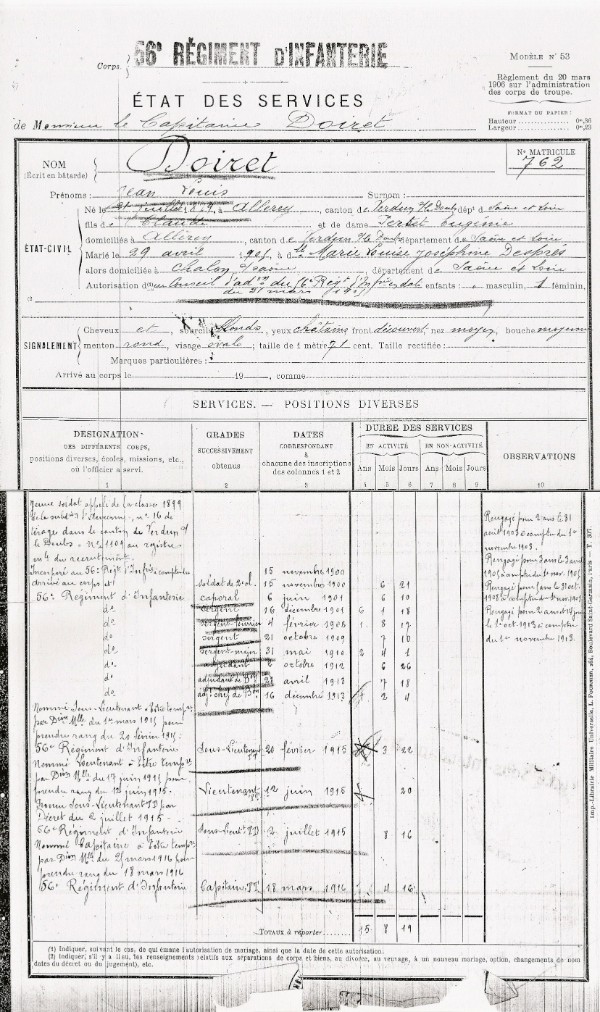 Corps. 56e RÉGIMENT D'INFANTERIE
MODÈLE N° 53
Règlement du 20 mars
1906 sur l'administration
des corps de troupe.
FORMAT DU PAPIER:
Hauteur 0m,36
Largeur 0m,23
ÉTAT DES SERVICES
de Monsieur le Capitaine Doiret
NOM Doiret
(Écrit en bâtarde)
N° MATRICULE
762
Prénoms: Jean Louis Surnom:
Né le 1879, à Allerey, canton de Verdun s/ le Doubs, dépt de Saône et Loire
fils de Claude et de dame Eugénie
ÉTAT-CIVIL
domiciliés à Allerey, canton de Verdun s/ le Doubs département de Saône et Loire
Marié le 29 avril à Marie Louise Joséphine Després
alors domiciliée à Chalon s/ Saône, département de Saône et Loire
Autorisation du Conseil d'adon du 56e Régt d'Infrie en date enfants: masculin, 1 féminin,
du 21 mars
SIGNALEMENT
Cheveux et sourcils blonds, yeux châtains front découvert, nez moyen, bouche moyenne
menton rond, visage ovale; taille de 1 mètre 71 cent. Taille rectifiée:
Marques particulières:
Arrivé au corps le 19 , comme
SERVICES. — POSITIONS DIVERSES
DÉSIGNATION
DES DIFFÉRENTS CORPS,
positions diverses, écoles, missions, etc.,
où l'officier a servi.
GRADES
SUCCESSIVEMENT
obtenus
DATES
CORRESPONDANT
à
chacune des inscriptions
des colonnes 1 et 2
DURÉE DES SERVICES
EN ACTIVITÉ EN NON-ACTIVITÉ
Ans Mois Jours Ans Mois Jours
OBSERVATIONS
1 2 3 4 5 6 7 8 9 10
Jeune soldat appelé de la classe 1899
de la subdon d'Auxonne, n° 16 de
tirage dans le canton de Verdun s/
le Doubs. N° 1109 au registre
mle du recrutement.
Incorporé au 56e Régt d'Infie à compter du 15 novembre 1900
arrivé au corps et soldat de 2e cl. 15 novembre 1900 6 21
56e Régiment d'Infanterie caporal 6 juin 1901 6 10
do sergent 16 décembre 1901 6 1 18
do sergent-fourrier 4 février 1908 1 8 17
do sergent 21 octobre 1909 7 10
do sergent-major 31 mai 1910 2 4 1
do adjudant 2 octobre 1912 6 26
do adjudant de Bon 28 avril 1913 7 18
do adjt chef de Bon 16 décembre 1913 2 4
Nommé Sous-Lieutenant à titre tempre
par Don Mlle du 1er mars 1915 pour
prendre rang du 20 février 1915.
56e Régiment d'Infanterie Sous-Lieutenant 20 février 1915 3 22
Nommé Lieutenant à titre tempre
par Don Mlle du 17 juin 1915 pour
prendre rang du 12 juin 1915. Lieutenant 12 juin 1915 20
Promu Sous-Lieutenant TD par
Décret du 2 juillet 1915.
56e Régiment d'Infanterie Sous-Lieut TD 2 juillet 1915 8 16
Nommé Capitaine à titre tempre
par Don Mlle du 25 mars 1916 pour
prendre rang du 18 mars 1916
56e Régiment d'Infanterie Capitaine TT 18 mars 1916 4 16
Rengagé pour 2 ans le 31
août 1903 à compter du 1er
novembre 1903.
Totaux à reporter 15 8 19
(1) Indiquer, suivant le cas, de qui émane l'autorisation de mariage, ainsi que la date de cette autorisation.
(2) Indiquer, s'il y a lieu, les renseignements relatifs aux séparations de corps et biens, au divorce, au veuvage, à un nouveau mariage, option, changements de nom
(dates du décret ou du jugement), etc.
Imp.-Librairie Militaire Universelle, L. Fournier, 264, Boulevard Saint-Germain, Paris.